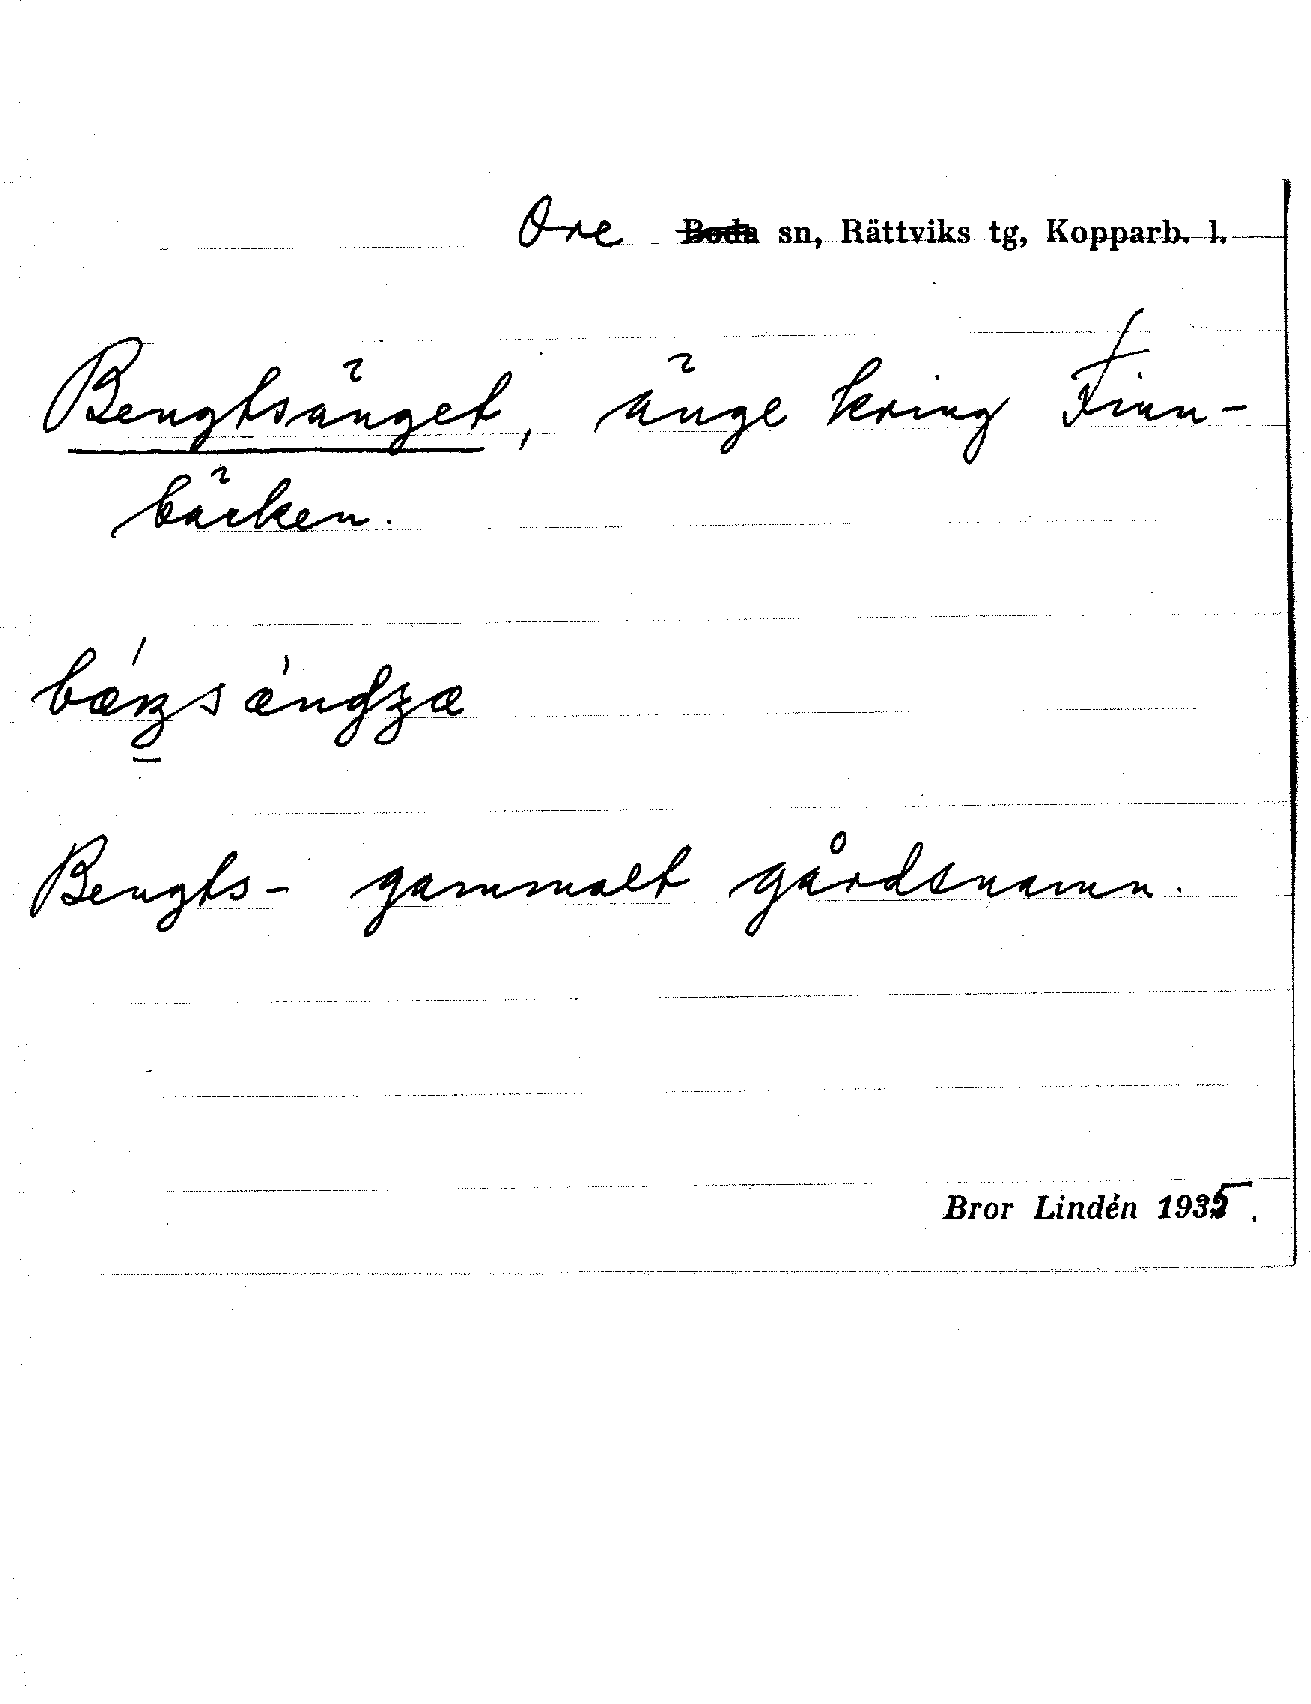 Ore ~~Boda~~ sn, Rättviks tg, Kopparb. l.
Bengtsänget, änge kring Finn-
bäcken.
Bengts- gammalt gårdsnamn.
Bror Lindén 1935.